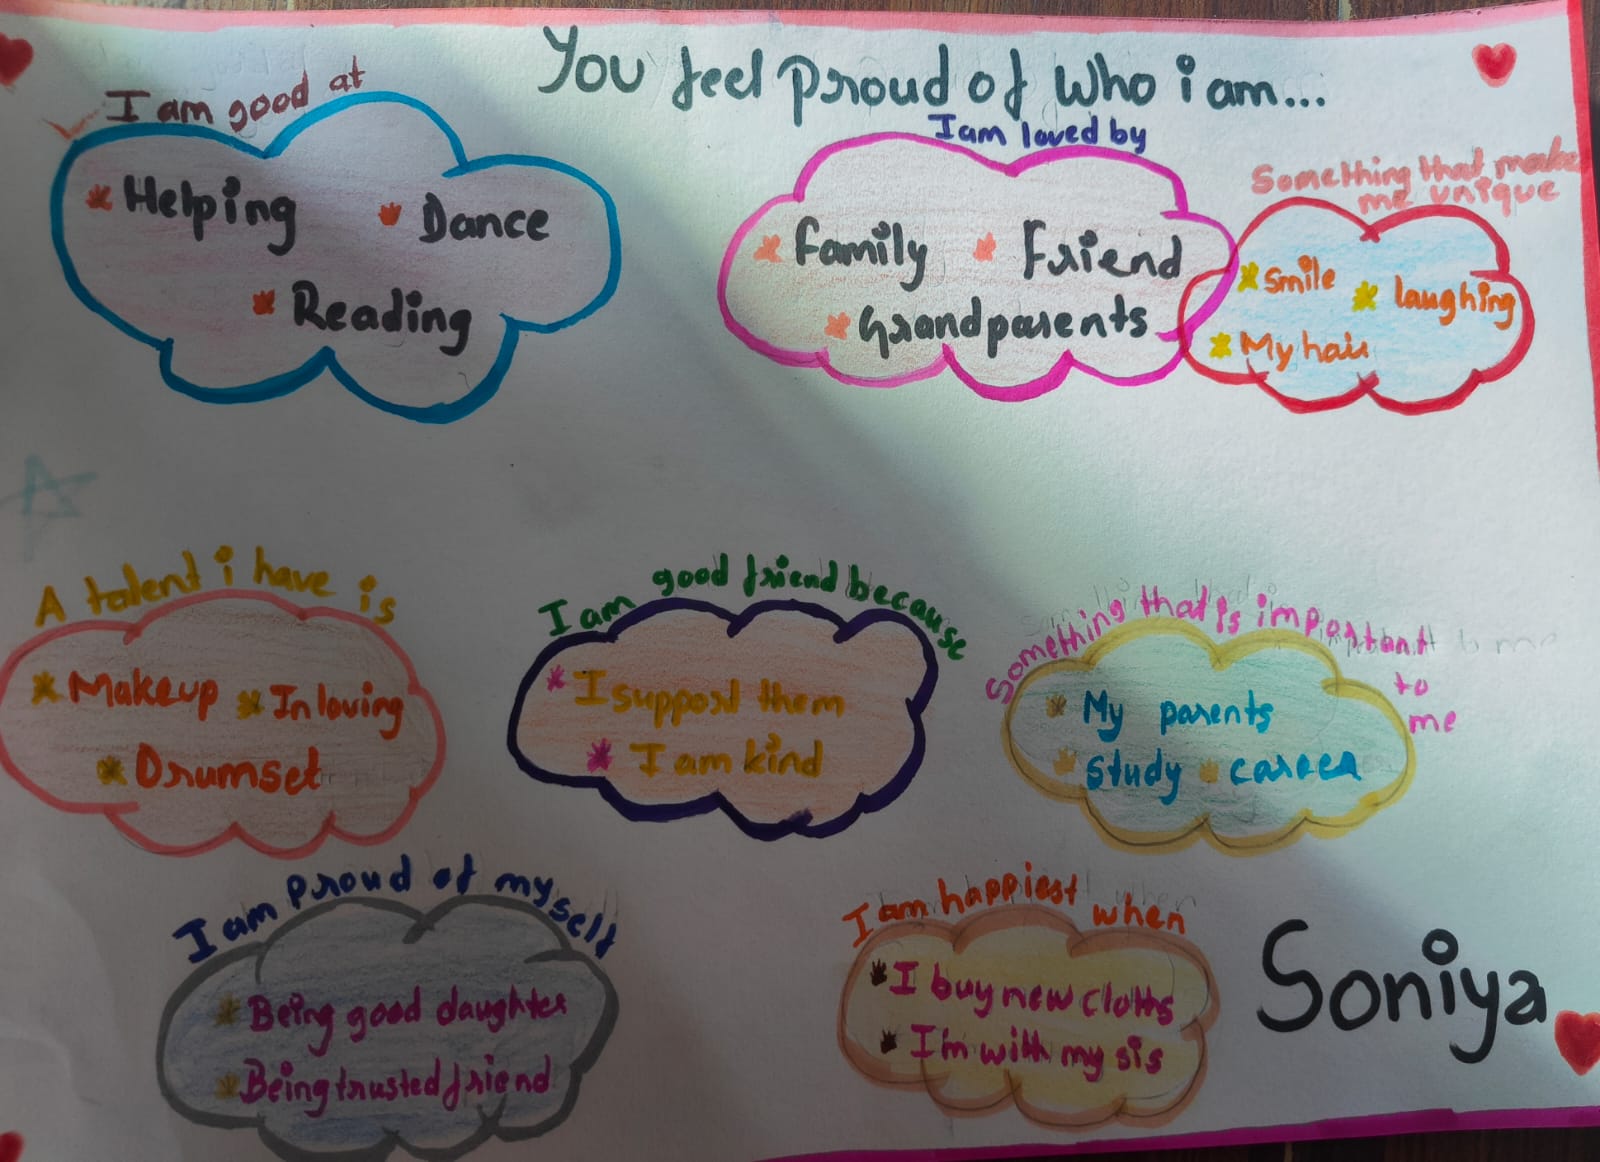 You feel proud of who i am...
I am good at
Helping
Dance
Reading
I am loved by
Family
Friend
Grandparents
Something that make
me unique
Smile
laughing
My hair
A talent i have is
Makeup
In loving
Drumset
I am good friend because
I support them
I am kind
Something that is important
to
me
My parents
Study
career
I am proud of myself
Being good daughter
Being trusted friend
I am happiest when
I buy new cloths
I'm with my sis
Soniya